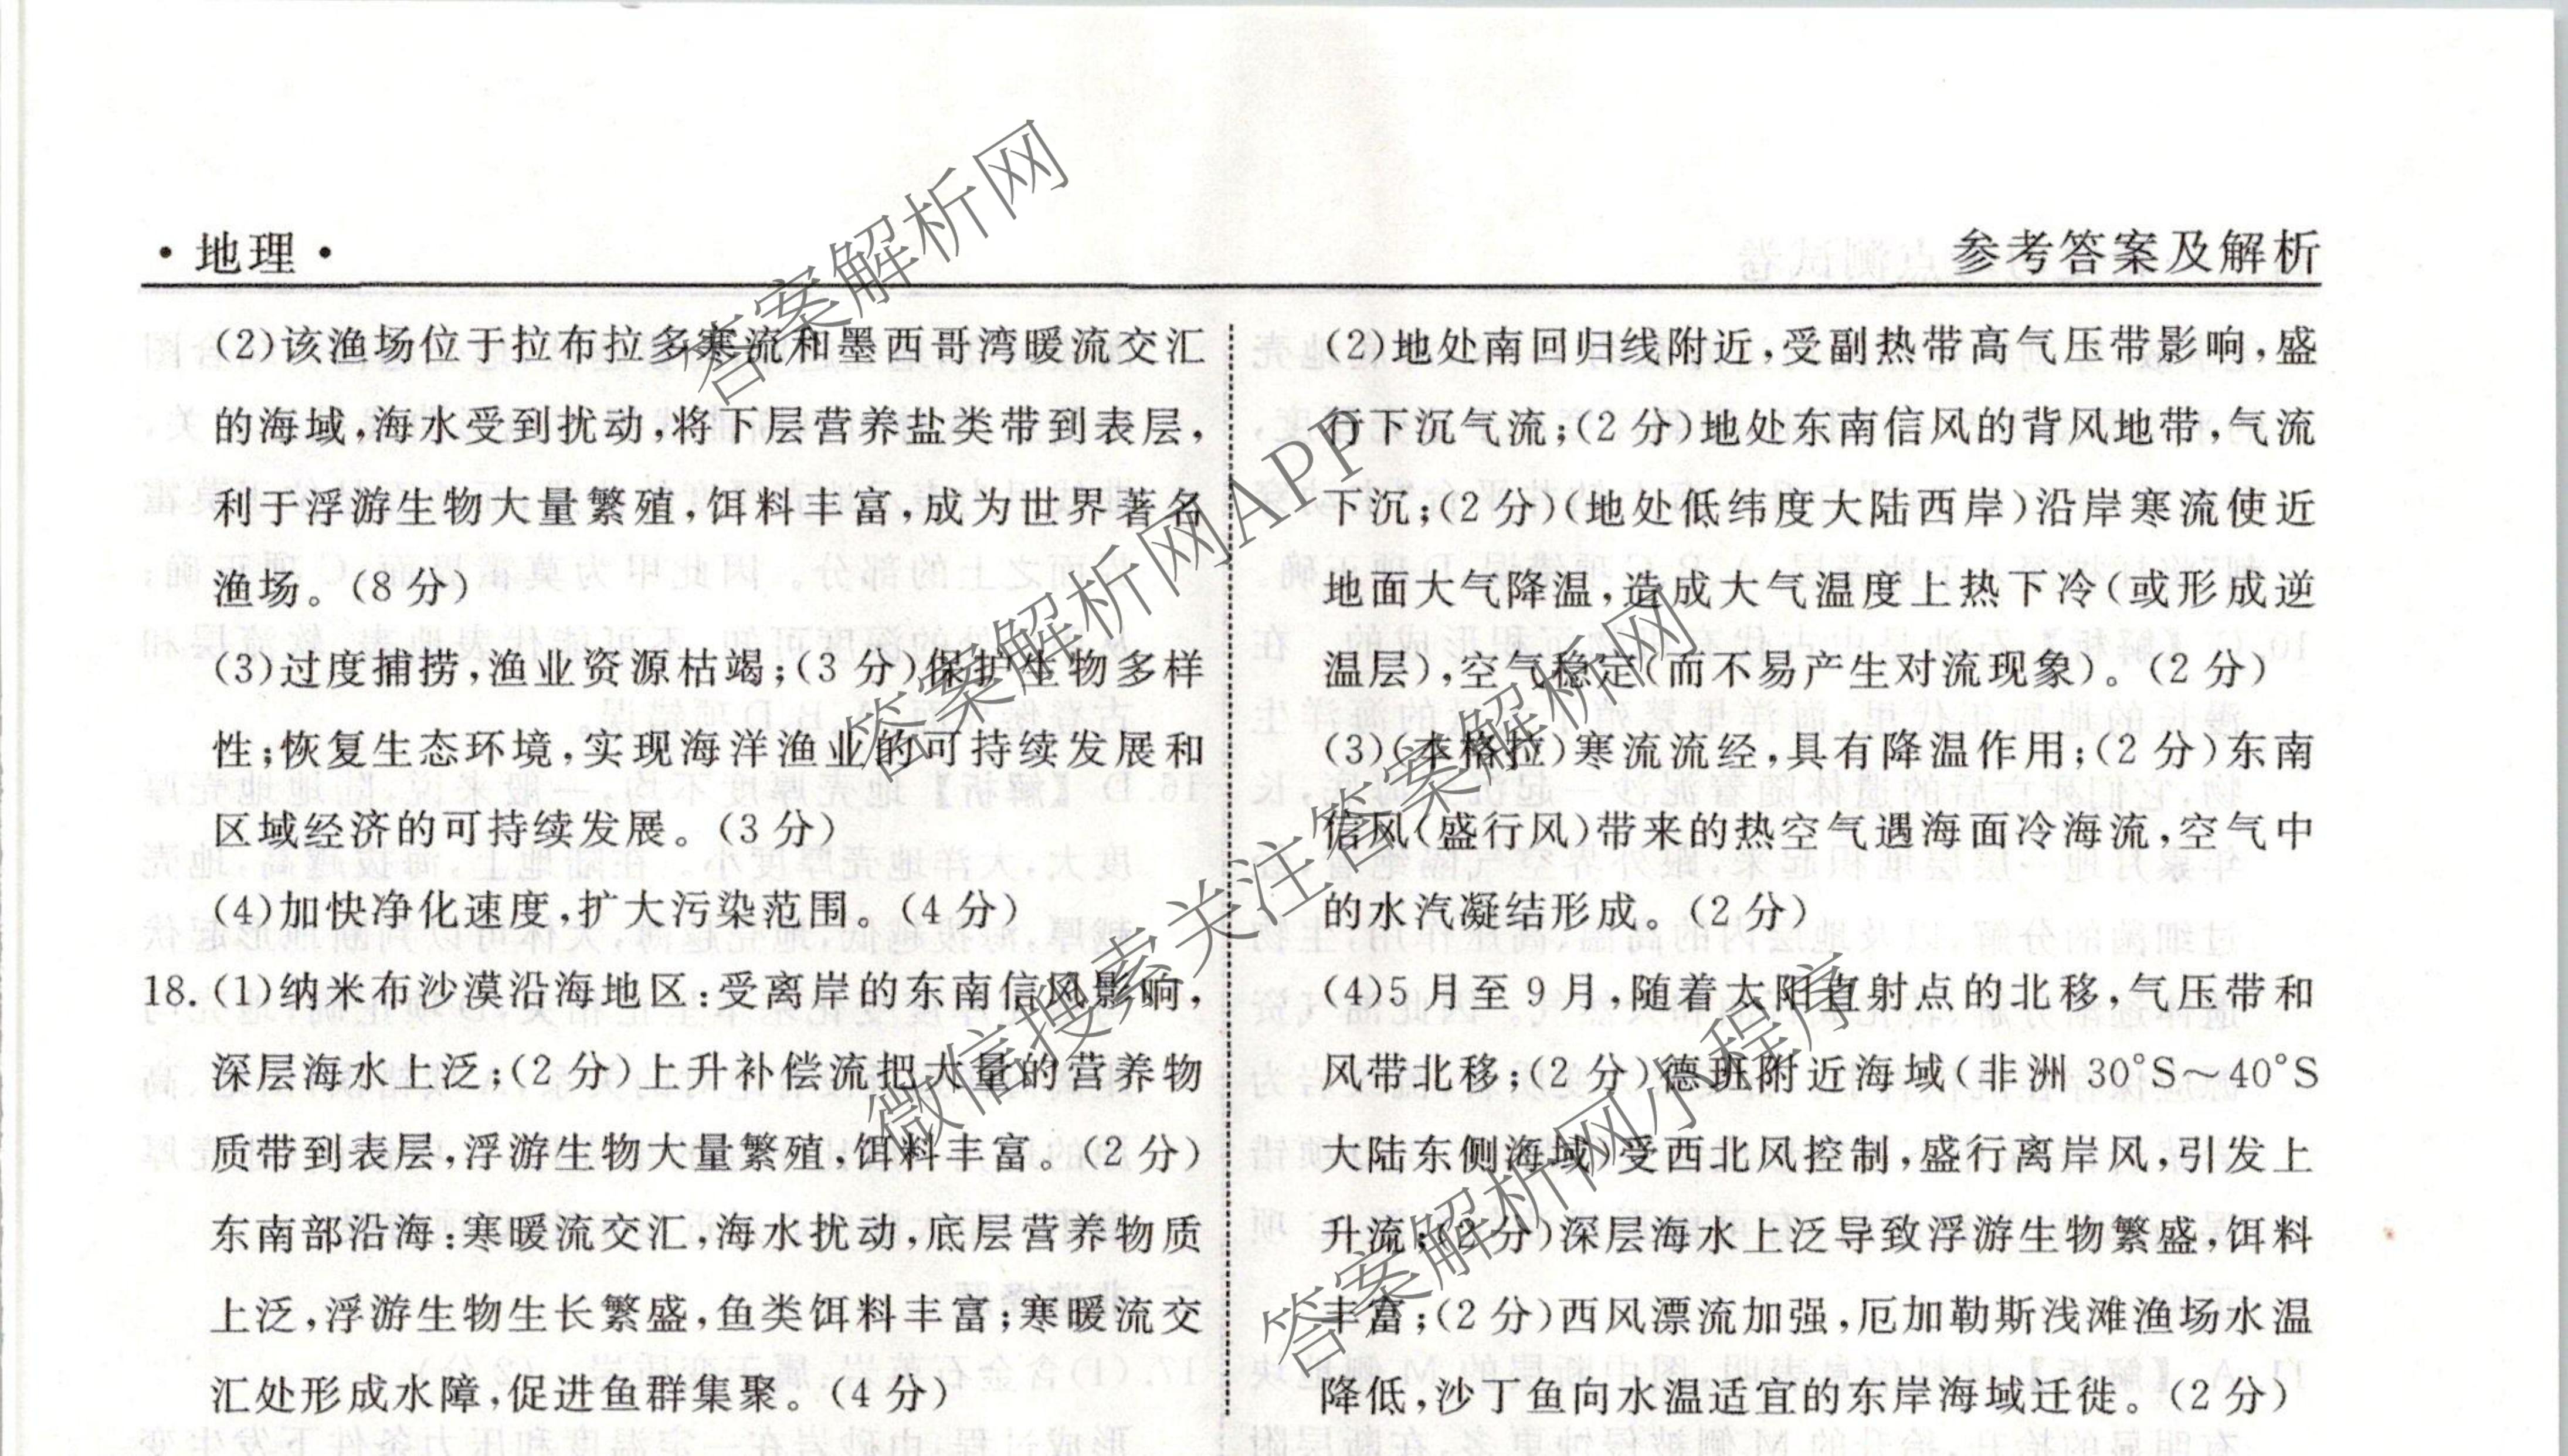 ·地理·
参考答案及解析
(2)该渔场位于拉布拉多寒流和墨西哥湾暖流交汇
的海域,海水受到扰动,将下层营养盐类带到表层,
利于浮游生物大量繁殖,饵料丰富,成为世界著名
渔场。(8分)
(3)过度捕捞,渔业资源枯竭;(3分)保护生物多样
性;恢复生态环境,实现海洋渔业的可持续发展和
区域经济的可持续发展。(3分)
(4)加快净化速度,扩大污染范围。(4分)
18.(1)纳米布沙漠沿海地区:受离岸的东南信风影响,
深层海水上泛;(2分)上升补偿流把大量的营养物
质带到表层,浮游生物大量繁殖,饵料丰富。(2分)
东南部沿海:寒暖流交汇,海水扰动,底层营养物质
上泛,浮游生物生长繁盛,鱼类饵料丰富;寒暖流交
汇处形成水障,促进鱼群集聚。(4分)
(2)地处南回归线附近,受副热带高气压带影响,盛
行下沉气流;(2分)地处东南信风的背风地带,气流
下沉;(2分)(地处低纬度大陆西岸)沿岸寒流使近
地面大气降温,造成大气温度上热下冷(或形成逆
温层),空气稳定(而不易产生对流现象)。(2分)
(3)(本格拉)寒流流经,具有降温作用;(2分)东南
信风(盛行风)带来的热空气遇海面冷海流,空气中
的水汽凝结形成。(2分)
(4)5月至9月,随着太阳直射点的北移,气压带和
风带北移;(2分)德班附近海域(非洲30°S～40°S
大陆东侧海域)受西北风控制,盛行离岸风,引发上
升流;(2分)深层海水上泛导致浮游生物繁盛,饵料
丰富;(2分)西风漂流加强,厄加勒斯浅滩渔场水温
降低,沙丁鱼向水温适宜的东岸海域迁徙。(2分)
答案解析网
答案解析网APP
微信搜索关注答案解析网
答案解析网小程序